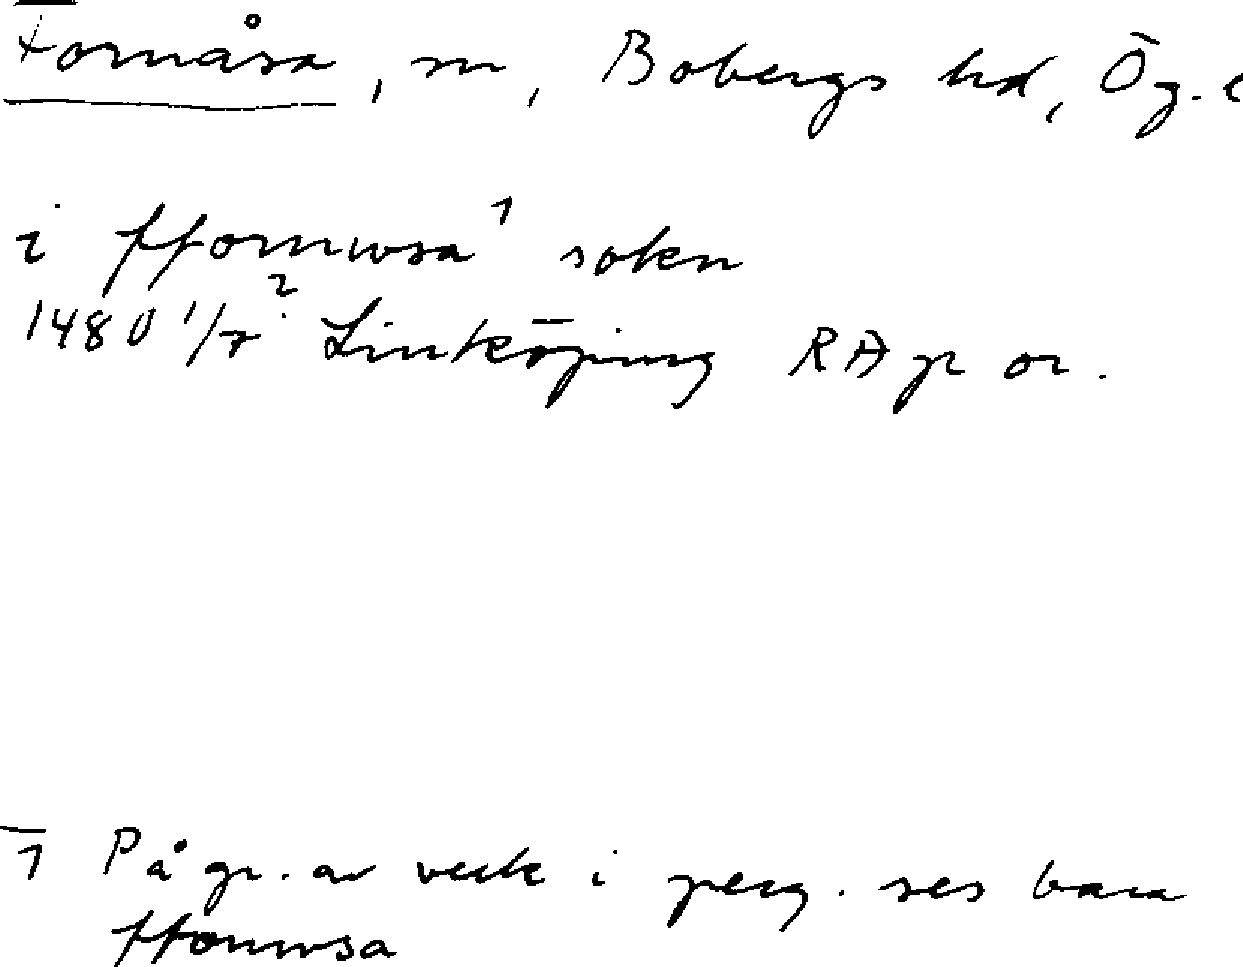 Fornåsa, sn, Bobergs hd, Ög.
i ffornwsa¹ sokn
1480 1/7² Linköping RA p or.
1 På gr. av veck i perg. ses bara
fformwsa